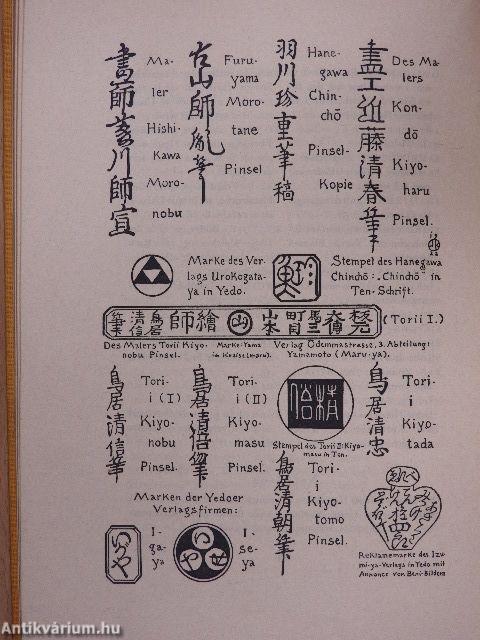 書師菱川師宣
Ma-
ler
Hishi-
Kawa
Moro-
nobu
古山師胤筆
Furu-
yama
Moro-
tane
Pinsel
羽川珍重筆稿
Hane-
gawa
Chin-
chō
Pinsel-
Kopie
畫工近藤清春筆
Des Ma-
lers
Kon-
dō
Kiyo-
haru
Pinsel.
Marke des Ver-
lags Urokogata-
ya in Yedo.
Stempel des Hanegawa
Chinchō: „Chinchō“ in
Ten-Schrift.
繪師
鳥居
清信
筆
山
山本
(Torii I.)
Des Malers Torii Kiyo-
nobu Pinsel.
Marke: Yama
im Kreise (maru).
Verlag Odemmastrasse, 3. Abteilung:
Yamamoto (Maru-ya).
鳥居清信筆
Tori-
i (I)
Kiyo-
nobu
Pinsel.
鳥居清倍筆
Tori-
i (II)
Kiyo-
masu
Pinsel.
清倍
Stempel des Torii II: Kiyo-
masu in Ten.
鳥居清忠
Tori-
i
Kiyo-
tada
鳥居清朝筆
Tori-
i
Kiyo-
tomo
Pinsel.
Marken der Yedoer
Verlagsfirmen:
いがや
I-
ga-
ya
いせや
I-
se-
ya
Reklamemarke des Izu-
mi-ya-Verlags in Yedo mit
Annonce von Beni-Bildern
Antikvárium.hu